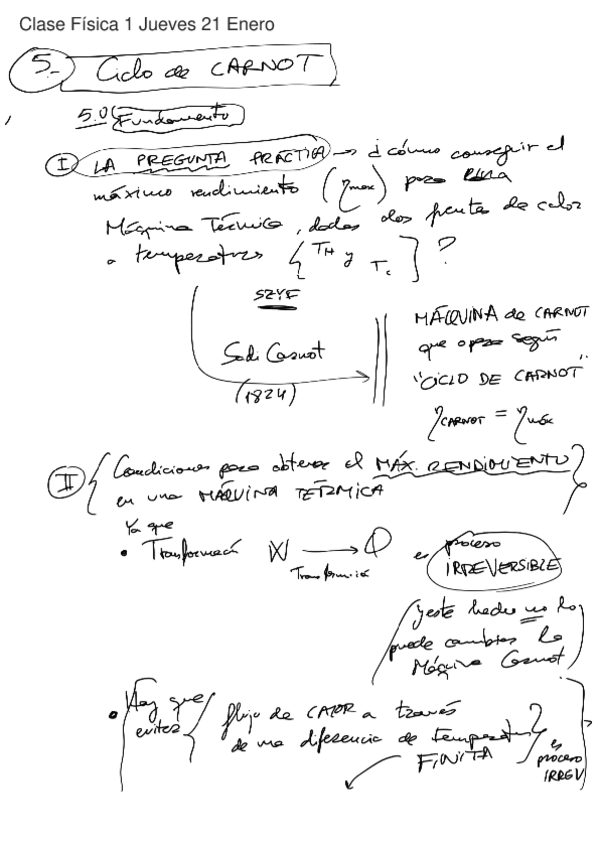 Clase Física 1 Jueves 21 Enero
5.- Ciclo de CARNOT
5.0 Fundamento
I LA PREGUNTA PRÁCTICA → ¿cómo conseguir el
máximo rendimiento (ηmax) para una
Máquina Térmica, dadas dos fuentes de calor
a temperaturas { TH y Tc } ?
SZYF
Sadi Carnot
(1824)
MÁQUINA de CARNOT
que opera según
"CICLO DE CARNOT"
ηCARNOT = ηmáx
II Condiciones para obtener el MÁX. RENDIMIENTO
en una MÁQUINA TÉRMICA
Ya que
• Transformación W → Q es proceso
IRREVERSIBLE
Transformación
(y este hecho no lo
puede cambiar la
Máquina Carnot)
• Hay que
evitar
flujo de CALOR a través
de una diferencia de temperatura
FINITA
es
proceso
IRREV